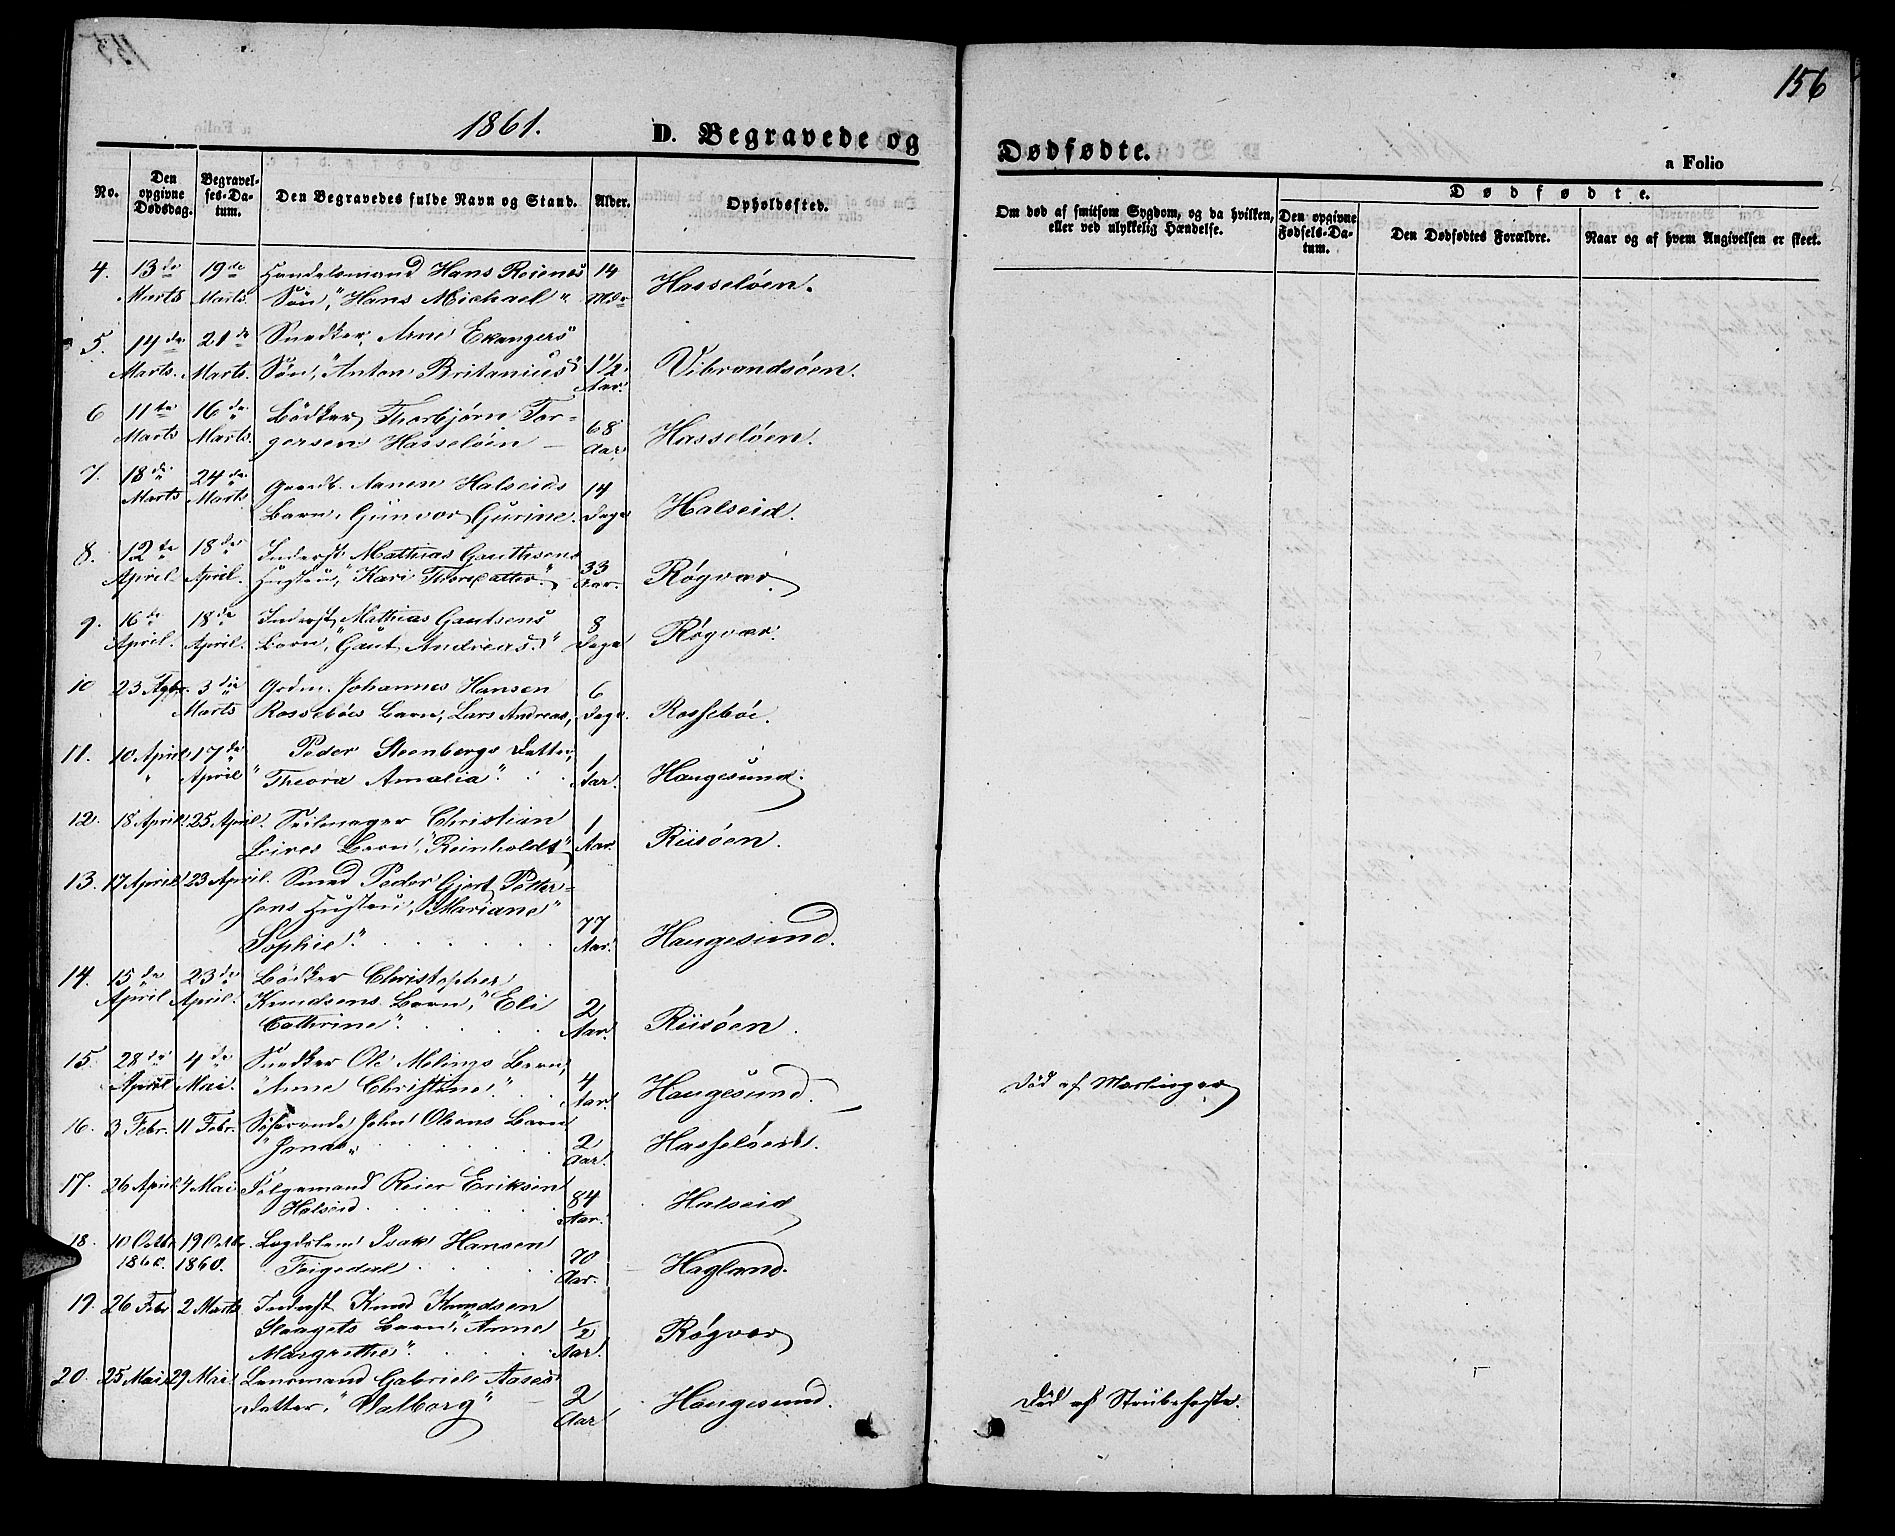 156
1861.
D. Begravede og
Dødfødte.
a Folio
No.
Den opgivne Dødsdag.
Begravelses-Datum.
Den Begravedes fulde Navn og Stand.
Alder.
Opholdssted.
Om død af smitsom Sygdom, og da hvilken, eller ved ulykkelig Hændelse.
Dødfødte.
Den opgivne Fødsels-Datum.
Den Dødfødtes Forældre.
Naar og af hvem Angivelsen er skeet.
4. 13de 19de Handelsmand Hans Reiers 14
Marts Marts. Søn, "Hans Michael" Mdr Hasseløen.
5. 14de 21de Snedker Arne Ekangers
Marts. Marts. Søn, "Anton Britanius" 1½ Aar. Vibrandsøen.
6 11te 16de Bødker Thorbjørn Tor-
Marts Marts. gersen Hasseløen — 68 Aar. Hasseløen.
7. 18de 24de Gaardb. Aanen Halseids 14
Marts Marts Barn, Gunvor Gurine. Dage Halseid.
8. 12te 18de Inderst Mathias Gauthsens
April. April. Hustru, "Kari Thorsdatter". 33 Aar. Røgvær.
9. 16de 18de Inderst Mathias Gautsens 8
April. April. Barn, "Gaut Andreas" Dage Røgvær.
10 23 Febr. 3die Grdm. Johannes Hansen 6
Marts Rossebøes Barn, Lars Andreas, Dage. Rossebøe.
11. 10 April 17de Peder Steenbergs Datter, 1
" April "Theora Amalia". Aar. Haugesund.
12. 18 April. 25 April. Seilmager Christian 1
Leires Barn, "Reinholdt" Aar. Riisøen.
13. 17 April 23 April. Smed Peder Gjert Petter-
sens Hustru, "Mariane
Sophie." 77 Aar. Haugesund.
14. 15de 23de Bødker Christopher
April April. Knudsens Barn, "Eli
Cathrine". 2 Aar. Riisøen.
15. 28de 4de Snedker Ole Melings Barn,
April Mai. "Anne Christine". 4 Aar. Haugesund. Død af Meslinger
16. 3 Febr. 11 Febr. Søfarende John Olsens Barn
"Jonas" 2 Aar. Hasseløen.
17. 26 April 4 Mai Følgemand Reier Eriksen 84
Halseid Aar. Halseid
18. 10 Octbr 19 Octbr. Lægdslem Isak Hansen 70
1860. 1860. Feigedal Aar. Hagland.
19. 26 Febr 2 Marts Inderst Knud Knudsen
Skaagets Barn, "Anne ½
Margrethe". Aar. Røgvær
20. 25 Mai 29 Mai. Lensmand Gabriel Aases 2
Datter, "Valborg" — Aar Haugesund. Død af Strubehoste.